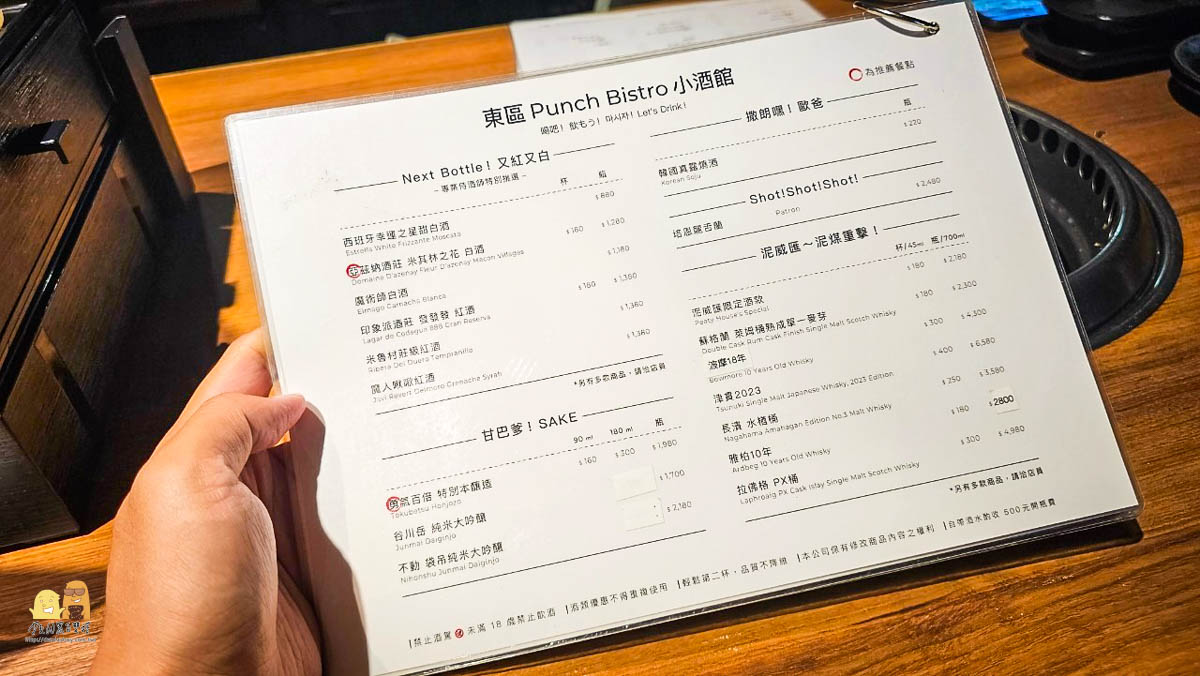 東區 Punch Bistro 小酒館
喝吧! 飲もう! 마시자! Let's Drink!
為推薦餐點
Next Bottle! 又紅又白
- 專業侍酒師特別推選 -
杯 瓶
西班牙幸運之星甜白酒 $880
Estrella White Frizzante Moscata
亞茲納酒莊 米其林之花 白酒 $160 $1,280
Domaine D'azenay Fleur D'azenay Macon Villages
魔術師白酒 $1,180
Elmago Garnacha Blanca
印象派酒莊 發發發 紅酒 $180 $1,360
Lagar de Codegua 888 Gran Reserva
米魯村莊級紅酒 $1,360
Ribera Del Duero Tempranillo
魔人啾啾紅酒 $1,380
Javi Revert Delmoro Grenacha Syrah
*另有多款商品,請洽店員
甘巴爹! SAKE
90 ml 180 ml 瓶
勇氣百倍 特別本釀造 $160 $300 $1,980
Tokubetsu Honjozo
谷川岳 純米大吟釀 $1,700
Junmai Daiginjo
不動 袋吊純米大吟釀 $2,180
Nihonshu Junmai Daiginjo
撒朗嘿! 歐爸
瓶
韓國真露燒酒 $220
Korean Soju
Shot!Shot!Shot!
培恩龍舌蘭 $2,480
Patron
泥威匯~泥煤重擊!
杯/45ml 瓶/700ml
泥威匯限定酒款 $180 $2,180
Peaty House's Special
蘇格蘭 萊姆桶熟成單一麥芽 $180 $2,300
Double Cask Rum Cask Finish Single Malt Scotch Whisky
波摩18年 $300 $4,300
Bowmore 10 Years Old Whisky
津貫2023 $400 $6,580
Tsunuki Single Malt Japanese Whisky, 2023 Edition
長濱 水楢桶 $250 $3,580
Nagahama Amahagan Edition No.3 Malt Whisky
雅柏10年 $180 $2800
Ardbeg 10 Years Old Whisky
拉佛格 PX桶 $300 $4,980
Laphroaig PX Cask Islay Single Malt Scotch Whisky
*另有多款商品,請洽店員
|禁止酒駕 未滿 18 歲禁止飲酒 |酒類優惠不得重複使用 |輕鬆第二杯,品質不降級 |本公司保有修改商品內容之權利 |自帶酒水酌收 500元開瓶費